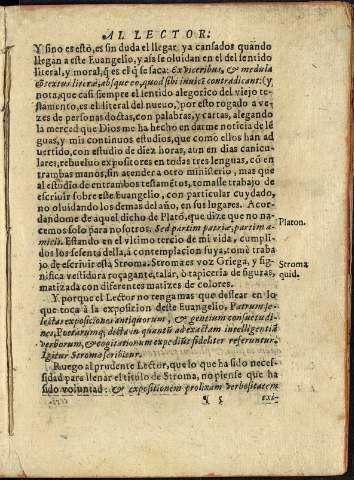 AL LECTOR:
Y sino es esto, es sin duda el llegar ya cansados quando
llegan a este Euangelio, y assi se oluidan en el del sentido
literal, y moral, q̃ es el q̃ se saca: Ex visceribus, & medula
& textus literæ, absque eo, quod sibi inuicẽ contradicant: (y
nota, que casi siempre el sentido alegorico del viejo te-
stamento, es el literal del nueuo,) por esto rogado a ve-
zes de personas doctas, con palabras, y cartas, alegando
la merced que Dios me ha hecho en darme noticia de lẽ
guas, y mis continuos estudios, que como ellos hán ad
uertido, con estudio de diez horas, aun en dias canicu-
lares, rebueluo expositores en todas tres lenguas, cõ en
trambas manos, sin atender a otro ministerio, mas que
al estudio de entrambos testamẽtos, tomasse trabajo de
escriuir sobre este Euangelio, con particular cuydado,
no oluidando los demas del año, en sus lugares. Acor-
dandome de aquel dicho de Platõ, que dize que no na-
cemos solo para nosotros. Sed partim patriæ, partim a-
micis. Estando en el vltimo tercio de mi vida, cumpli-
dos los sesenta della, á contemplacion suya, tomè traba
jo de escriuir està Stroma. Stroma es voz Griega, y sig-
nifica vestidura roçagante, talar, ò tapiceria de figuras,
matizada con diferentes matizes de colores.
Platon.
Stroma
quid.
Y porque el Lector no tenga mas que dessear en lo
que toca à la exposicion deste Euangelio, Patrum se-
lectas expositiones antiquorum, & gentium consuetudi-
nes, Poetarumq; dicta in quantũ ad exactam intelligentiã
verborum, & cogitationum expedit fideliter referuntur.
Igitur Stroma scribitur.
Ruego al prudente Lector, que lo que ha sido neces-
sidad para llenar el titulo de Stroma, no piense que ha
sido voluntad: & expositionem prolixam verbositatem
exi-